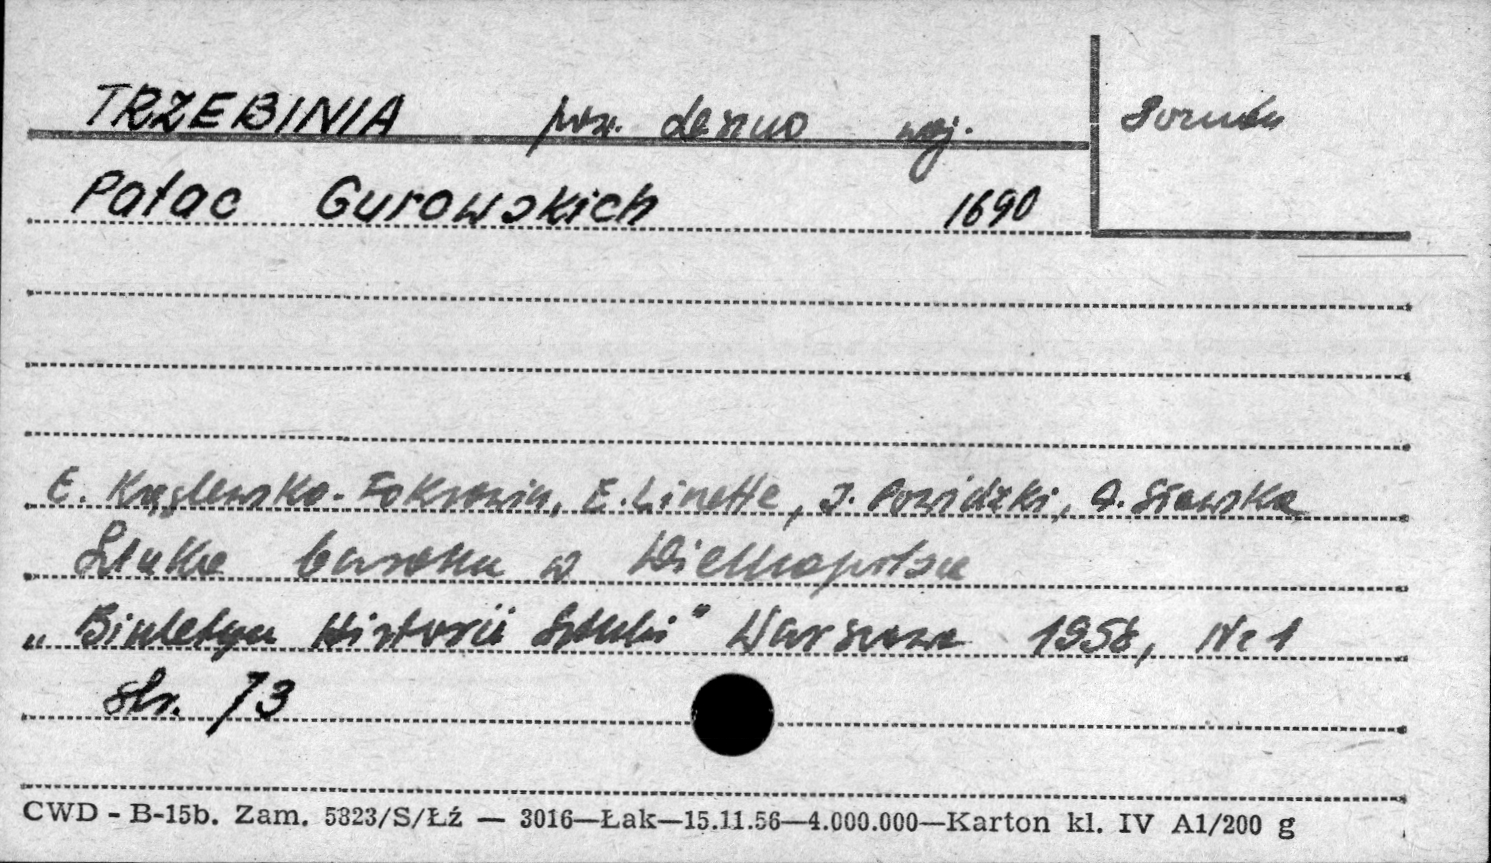 TRZEBINIA pow. Leszno woj. Poznań
Pałac Gurowskich 1690
E. Kręglewska-Foksowicz, E. Linette, J. Powidzki, A. Sławska
Sztuka baroku w Wielkopolsce
„Biuletyn Historii Sztuki" Warszawa 1958, Nr 1
str. 73
CWD - B-15b. Zam. 5323/S/Łź — 3016—Łak—15.11.56—4.000.000—Karton kl. IV A1/200 g